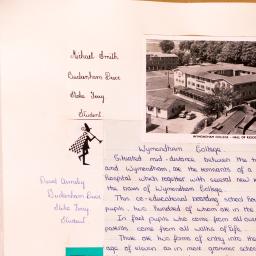 Michael Smith
Student
WYMONDHAM COLLEGE - HALL OF RESID
Wymondham College
Situated mid-distance between the t
and Wymondham, are the remnants of a
hospital which together with several new
the basis of Wymondham College.
This co-educational boarding school hou
pupils, two hundred of whom are in the
In fact pupils who come from all over
parents come from all walks of life.
There are two forms of entry into the
age of eleven as in most grammar school
David
Student